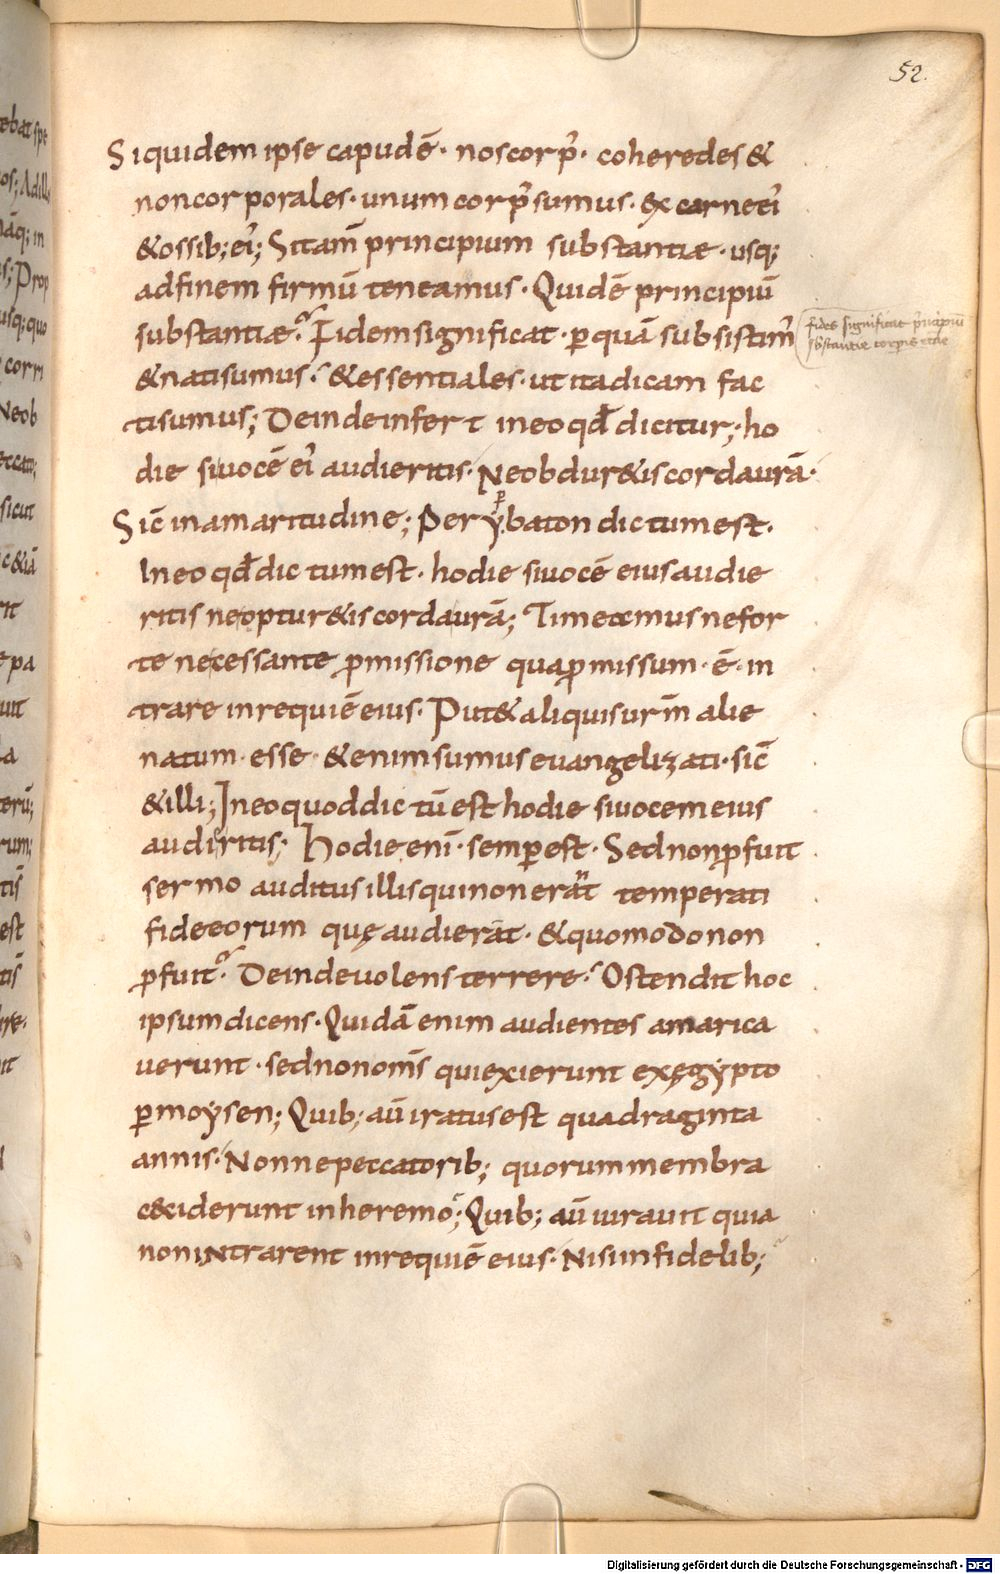 52.
Siquidem ipse capud ē· nos corp᾽· coheredes &
noncorporales· unum corp᾽ sumus· ex carne ei᾽
& ossib; ei᾽; Si tam̄ principium substantiæ· usq;
ad finem firmū teneamus· Quid ē principiū
substantiæ? Fidem significat· p̱ quā subsistim᾽
& nati sumus· & essentiales· ut ita dicam fac
ti sumus; Deinde infert in eo qđ dicitur; ho
die si uocē ei᾽ audieritis· Neobdur&is corda urā·
Sic̄ in amaritudine; Per yṗbaton dictum est·
In eo qđ dictum est· hodie si uocē eius audie
ritis neoptur&is corda urā; Timeamus ne for
te necessante p̱missione qua p̱missum· ē· in
trare in requiē eius· Put& aliquis urm̄ alie
natum· esse· &enim sumus euangelizati· sic̄
& illi; In eo quod dictū est hodie si uocem eius
audiritis; Hodie enī· semp̱ est· Sed non p̱fuit
sermo auditus illis qui non erant temperati
fide eorum quę audierāt· & quomodo non
p̱fuit? Deinde uolens terrere· Ostendit hoc
ipsum dicens· Quidā enim audientes amarica
uerunt· sed non om̄s qui exierunt ex ęgypto
p̱ moysen; Quib; aū iratus est quadraginta
annis· Nonne peccatorib; quorum membra
ceciderunt in heremo; Quib; aū iurauit quia
non intrarent in requiē eius· Nisi infidelib;
fides significat principiū